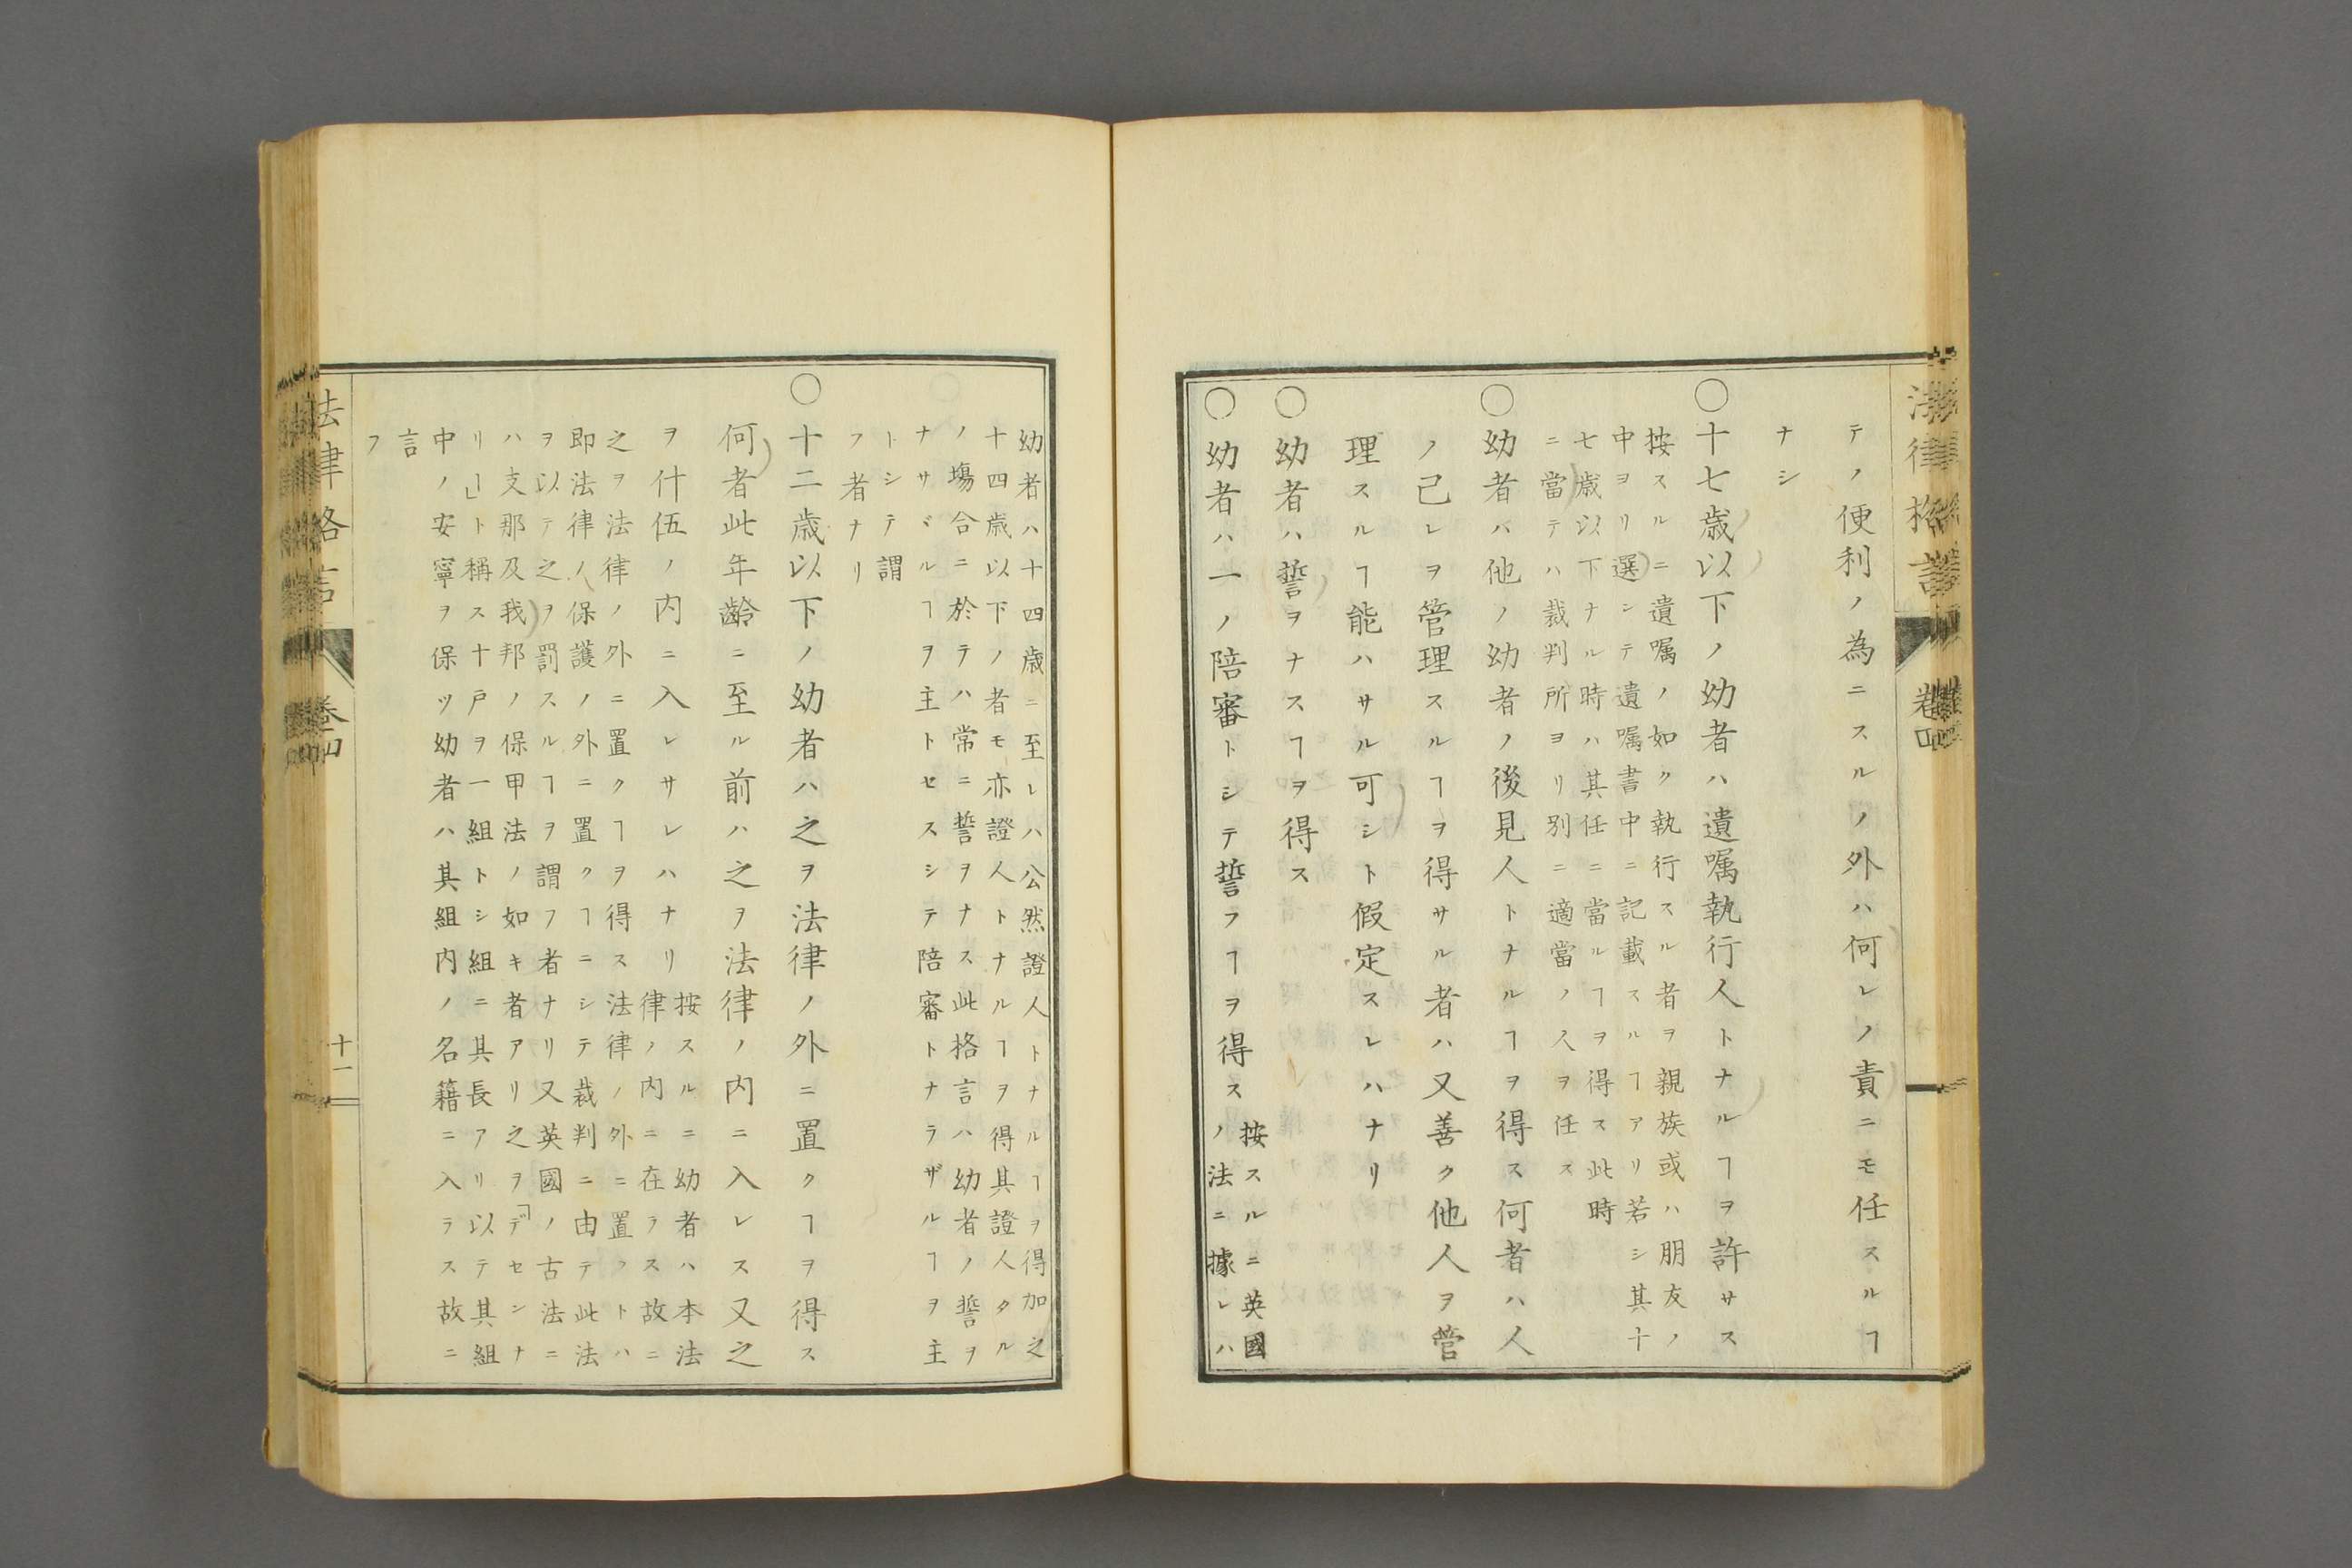 法律格言
卷四
テノ便利ノ為ニスルノ外ハ何レノ責ニモ任スルヿ
ナシ
〇十七歳以下ノ幼者ハ遺嘱執行人トナルヿヲ許サス
按スルニ遺嘱ノ如ク執行スル者ヲ親族或ハ朋友ノ
中ヨリ選ンテ遺嘱書中ニ記載スルヿアリ若シ其十
七歳以下ナル時ハ其任ニ當ルヿヲ得ス此時
ニ當テハ裁判所ヨリ別ニ適當ノ人ヲ任ス
〇幼者バ他ノ幼者ノ後見人トナルヿヲ得ス何者ハ人
ノ己レヲ管理スルヿヲ得サル者ハ又善ク他人ヲ管
理スルヿ能ハサル可シト假定スレハナリ
〇幼者ハ誓ヲナスヿヲ得ス
〇幼者ハ一ノ陪審トシテ誓フヿヲ得ス
按スルニ英國
ノ法ニ據レハ
幼者ハ十四歳ニ至レハ公然證人トナルヿヲ得加之
十四歳以下ノ者モ亦證人トナルヿヲ得其證人タル
ノ塲合ニ於テハ常ニ誓ヲナス此格言ハ幼者ノ誓ヲ
ナサバルヿヲ主トセスシテ陪審トナラザルヿヲ主
トシテ謂
フ者ナリ
〇十二歳以下ノ幼者ハ之ヲ法律ノ外ニ置クヿヲ得ス
何者此年齡ニ至ル前ハ之ヲ法律ノ内ニ入レス又之
ヲ什伍ノ内ニ入レサレハナリ
按スルニ幼者ハ本法
律ノ内ニ在ラス故ニ
之ヲ法律ノ外ニ置クヿヲ得ス法律ノ外ニ置クトハ
即法律ノ保護ノ外ニ置クヿニシテ裁判ニ由テ此法
ヲ以テ之ヲ罰スルヿヲ謂フ者ナリ又英國ノ古法ニ
ハ支那及我邦ノ保甲法ノ如キ者アリ之ヲ「デセンナ
リー」ト稱ス十戸ヲ一組トシ組ニ其長アリ以テ其組
中ノ安寧ヲ保ツ幼者ハ其組内ノ名籍ニ入ラス故ニ
言
フ
法律格言
卷四
十一